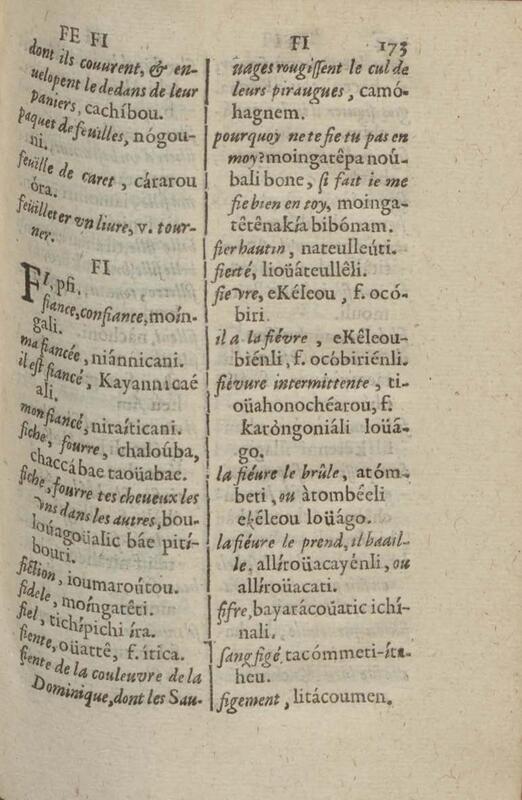 FE FI
dont ils couurent, & en-
uelopent le dedans de leur
paniers, cachíbou.
paquet de feuilles, nógou-
ni.
feuille de caret, cárarou
óra.
feuilleter vn liure, v. tour-
ner.
FI
FI, pfi.
fiance, confiance, moín-
gali.
ma fiancée, niánnicani.
il est fiancé, Kayannicaé
ali.
mon fiancé, niraíticani.
fiche, fourre, chaloúba,
chaccábae taoüabae.
fiche, fourre tes cheueux les
vns dans les autres, bou-
loúagoüalic báe pití-
bouri.
fiction, ioumaroútou.
fidele, moíngatêti.
fiel, tichípichi íra.
fiente, oüattê, f. ítica.
fiente de la couleuvre de la
Dominique, dont les Sau-
FI 173
uages rougissent le cul de
leurs piraugues, camó-
hagnem.
pourquoy ne te fie tu pas en
moy? moingatêpa noû-
bali bone, si fait ie me
fie bien en toy, moinga-
têtênakía bibónam.
fier hautin, nateulleúti.
fierté, lioüáteullêli.
fievre, eKéleou, f. ocó-
biri.
il a la fiévre, eKêleou-
biénli, f. ocóbiriénli.
fiévure intermittente, ti-
oüahonochéarou, f.
karòngoniáli loüá-
go.
la fiéure le brûle, atóm-
beti, ou àtombéeli
ekéleou loüágo.
la fiéure le prend, il baail-
le, allíroüacayénli, ou
allíroüacati.
fifre, bayarácoüatic ichí-
nali.
sang figé, tacómmeti-íta-
heu.
figement, litácoumen.